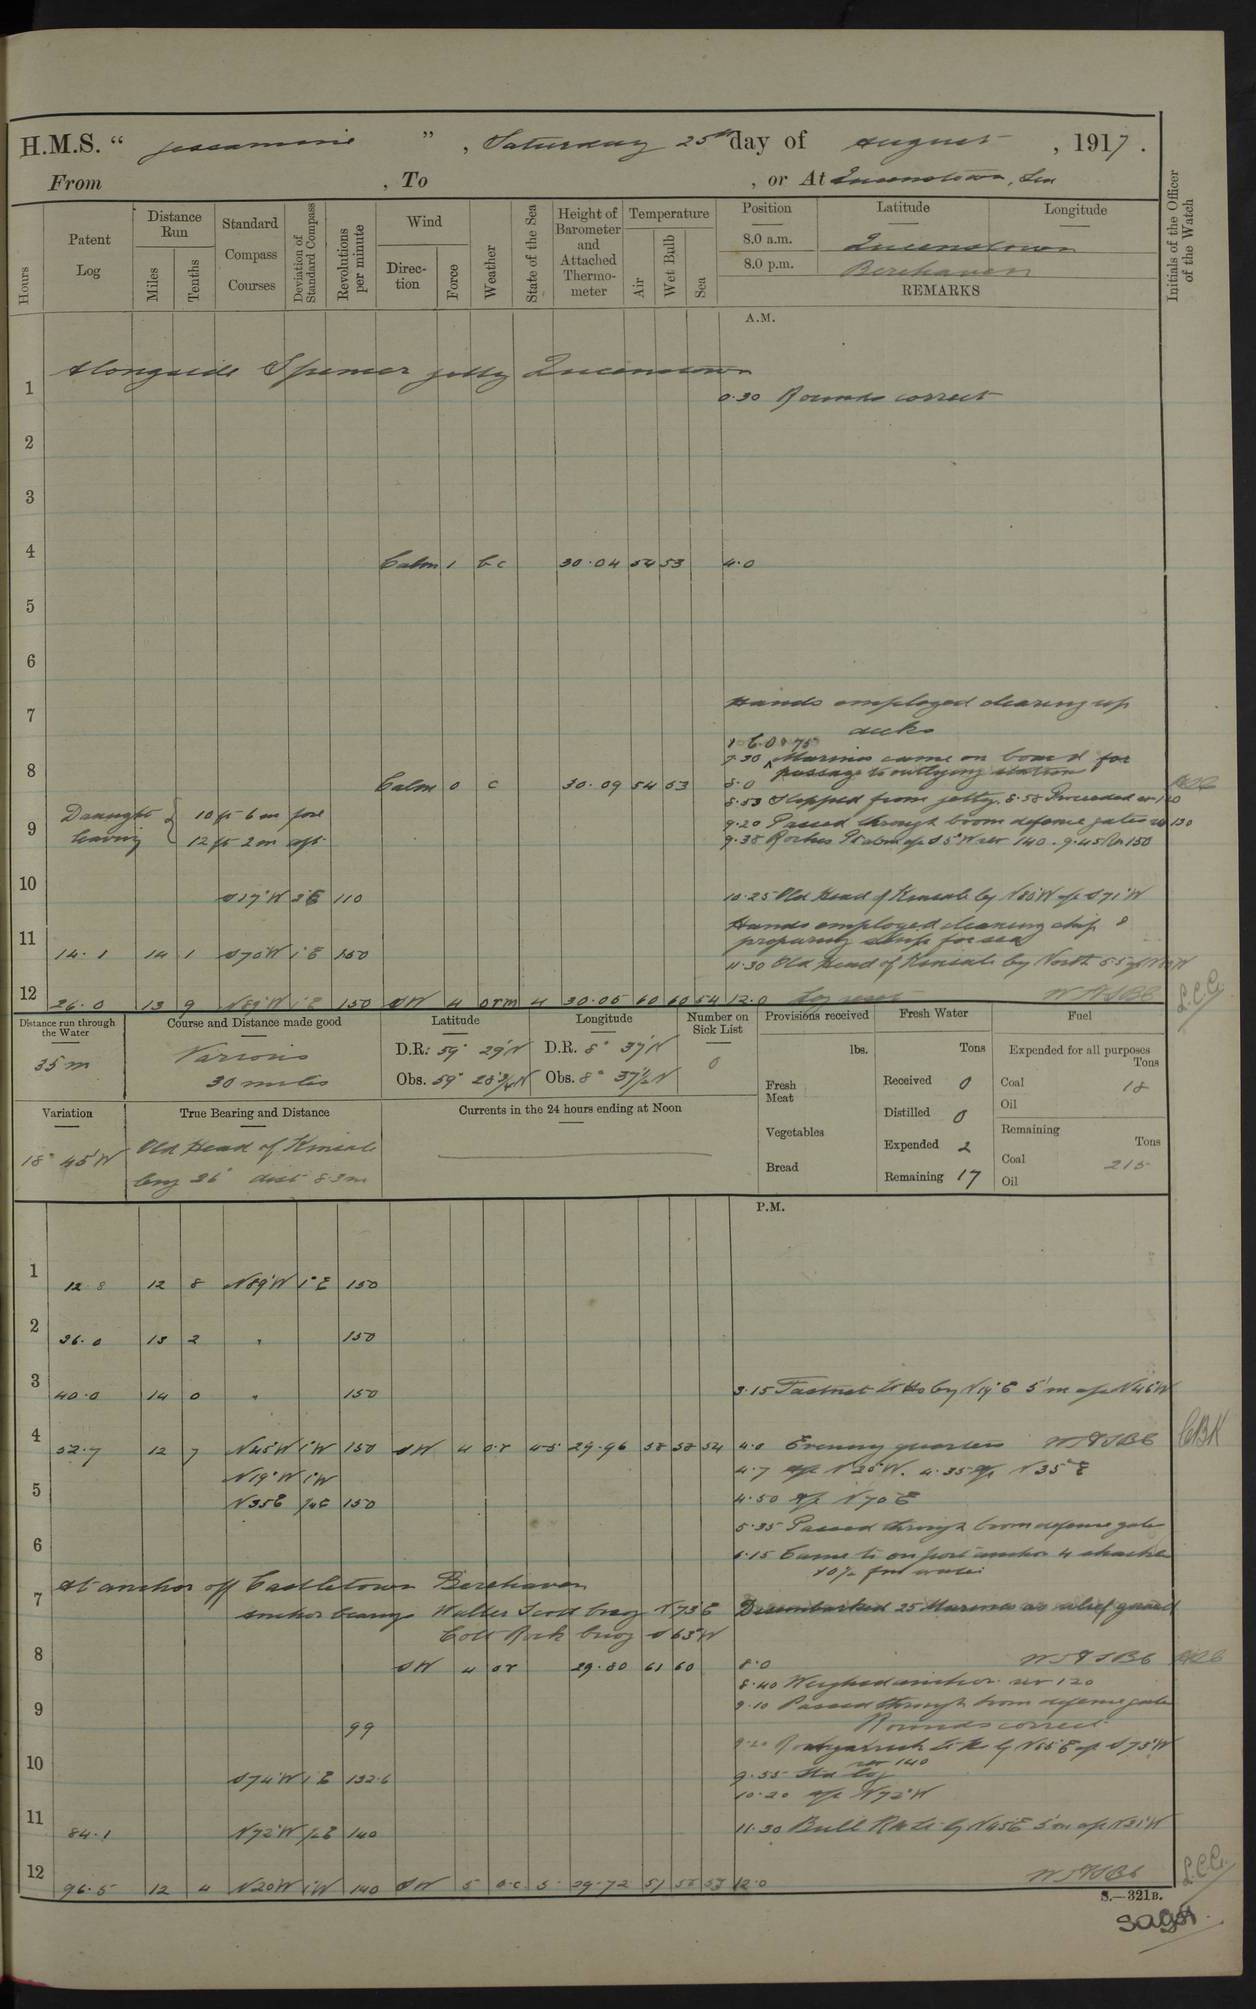 H.M.S. " Jessamine ", Saturday 25th day of August, 1917.
From , To , or At Queenstown, Sea
Hours
Patent Log
Distance Run
Miles
Tenths
Standard Compass Courses
Deviation of Standard Compass
Revolutions per minute
Wind
Direction
Force
Weather
State of the Sea
Height of Barometer and Attached Thermometer
Temperature
Air
Wet Bulb
Sea
Position Latitude Longitude
8.0 a.m. Queenstown
8.0 p.m. Berehaven
REMARKS
Initials of the Officer of the Watch
A.M.
Alongside Spencer jetty Queenstown
1 0.30 Rounds correct
2
3
4 Calm 1 bc 30.04 54 53 4.0
5
6
7 Hands employed clearing up
decks
7.30 Marines came on board for
passage to outlying station
8 Calm 0 c 30.09 54 53 8.0
8.53 Slipped from jetty. 8.58 Proceeded
Draught leaving { 10 ft 6 in fore
12 ft 2 in aft
9 9.20 Passed through boom defence gates 130
9.38 Roches Pt S 5°W rev 140. 9.45 Rev 150
10 S17°W 3°E 110 10.25 Old Head of Kinsale by N80°W a/c S71°W
Hands employed cleaning ship &
preparing ship for sea
11 14.1 14 1 S70°W 1°E 150
11.30 Old Head of Kinsale by North 5.5
12 26.0 13 9 N89°W 1°E 150 SW 4 orm 4 30.05 60 60 54 12.0 Log reset
L.C.C.
Distance run through the Water
35 m
Course and Distance made good
Various
30 miles
Latitude
D.R: 59° 29'N
Obs. 59° 28¾'N
Longitude
D.R. 8° 37'N
Obs. 8° 37½'N
Number on Sick List
0
Provisions received
lbs.
Fresh Meat
Vegetables
Bread
Fresh Water
Tons
Received 0
Distilled 0
Expended 2
Remaining 17
Fuel
Expended for all purposes
Tons
Coal 18
Oil
Remaining
Tons
Coal 215
Oil
Variation
18° 45'W
True Bearing and Distance
Old Head of Kinsale
brng 36° dist 8.3m
Currents in the 24 hours ending at Noon
P.M.
1 12.8 12 8 N89°W 1°E 150
2 26.0 13 2 " 150
3 40.0 14 0 " 150 3.15 Fastnet Lt Ho by N19°E 5'm a/c N46°W
4 52.7 12 7 N45°W 1°W 150 SW 4 or 4.5 29.96 58 58 54 4.0 Evening quarters CBK
N19°W 1°W 4.7 a/c N25°W. 4.35 a/c N35°E
5 N35E 150 4.50 a/c N70E
5.35 Passed through boom defence gate
6 6.15 Came to on port anchor 4 shackles
At anchor off Castletown Berehaven
7 anchor bearings Walter Scott buoy N73E Disembarked 25 Marines as relief guard
Colt Rock buoy S63°W
8 SW 4 or 29.80 61 60 8.0
8.40 Weighed anchor. rev 120
9 9.10 Passed through boom defence gate
99 Rounds correct
9.20 Roancarrick Lt Ho by N55°E a/c S73°W
rev 140
10 S74°W 1°E 132.6 9.55 Std log
10.20 a/c N72°W
11 84.1 N72°W 140 11.30 Bull Rk Lt by N45E 5'm a/c N21°W
12 96.5 12 4 N20W 1°W 140 SW 5 o.c 5 29.72 51 58 12.0 L.C.C.
S.—321B.